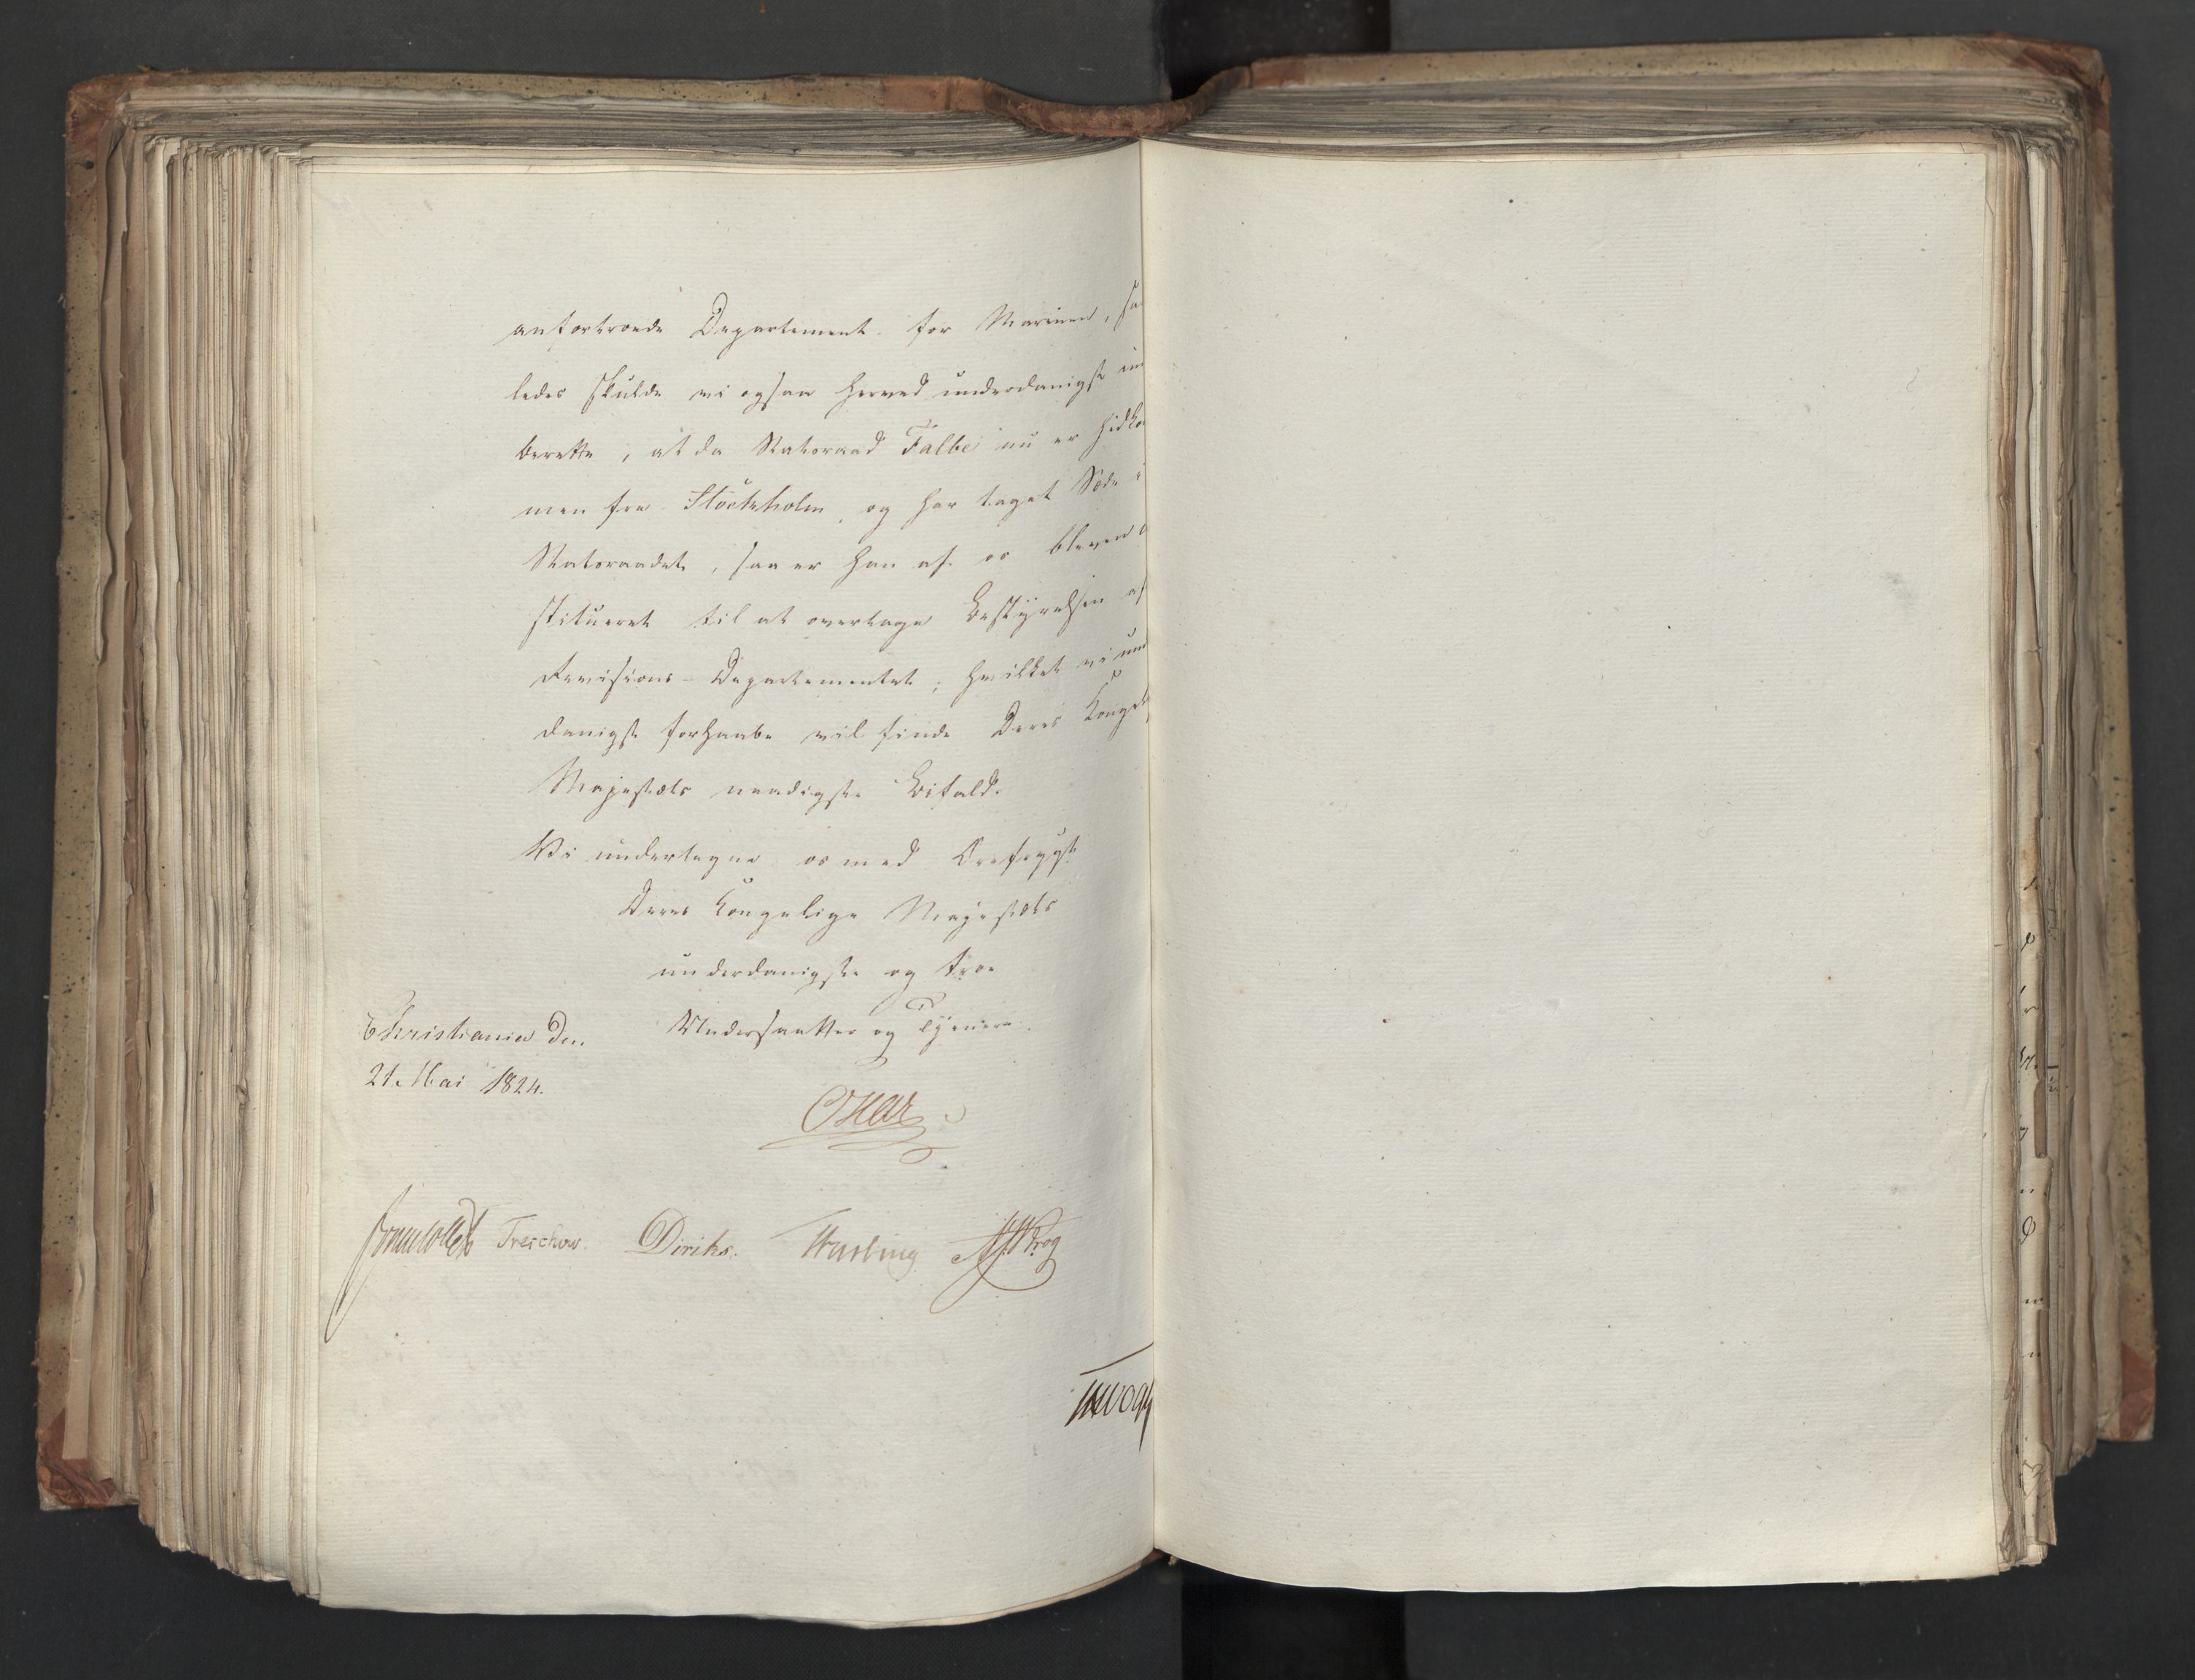 anfortroede Departement for Marinen, saa
ledes skulde vi ogsaa herved underdanigst ind
berette, at da Statsraad Falbe nu er hidkom
men fra Stockholm, og har taget Sæde i
Statsraadet, saa er han af os bleven
stitueret til at overtage Bestyrelsen af
Revisions-Departementet; hvilket vi und
danigst forhaabe vil finde Deres Kongel
Majestæts naadigste Bifald.
Vi undertegne os med Ærefrygt
Deres Kongelige Majestæts
underdanigste og troe
Undersaatter og Tjenere.
Christiania den
21. Mai 1824.
Oscar
Jonas Collett Treschow. Diriks. Fasting Krog
Vogt